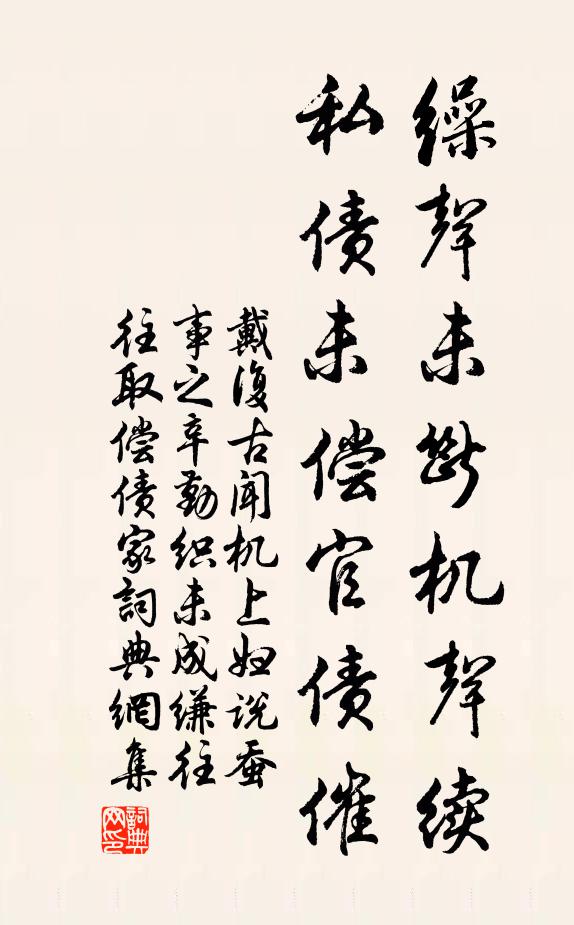 繰聲未断机聲续
私债未偿官债催
戴復古闻机上妞说蚕
事之辛勤织未成縑往
往取偿债家詞典網集
詞典网印